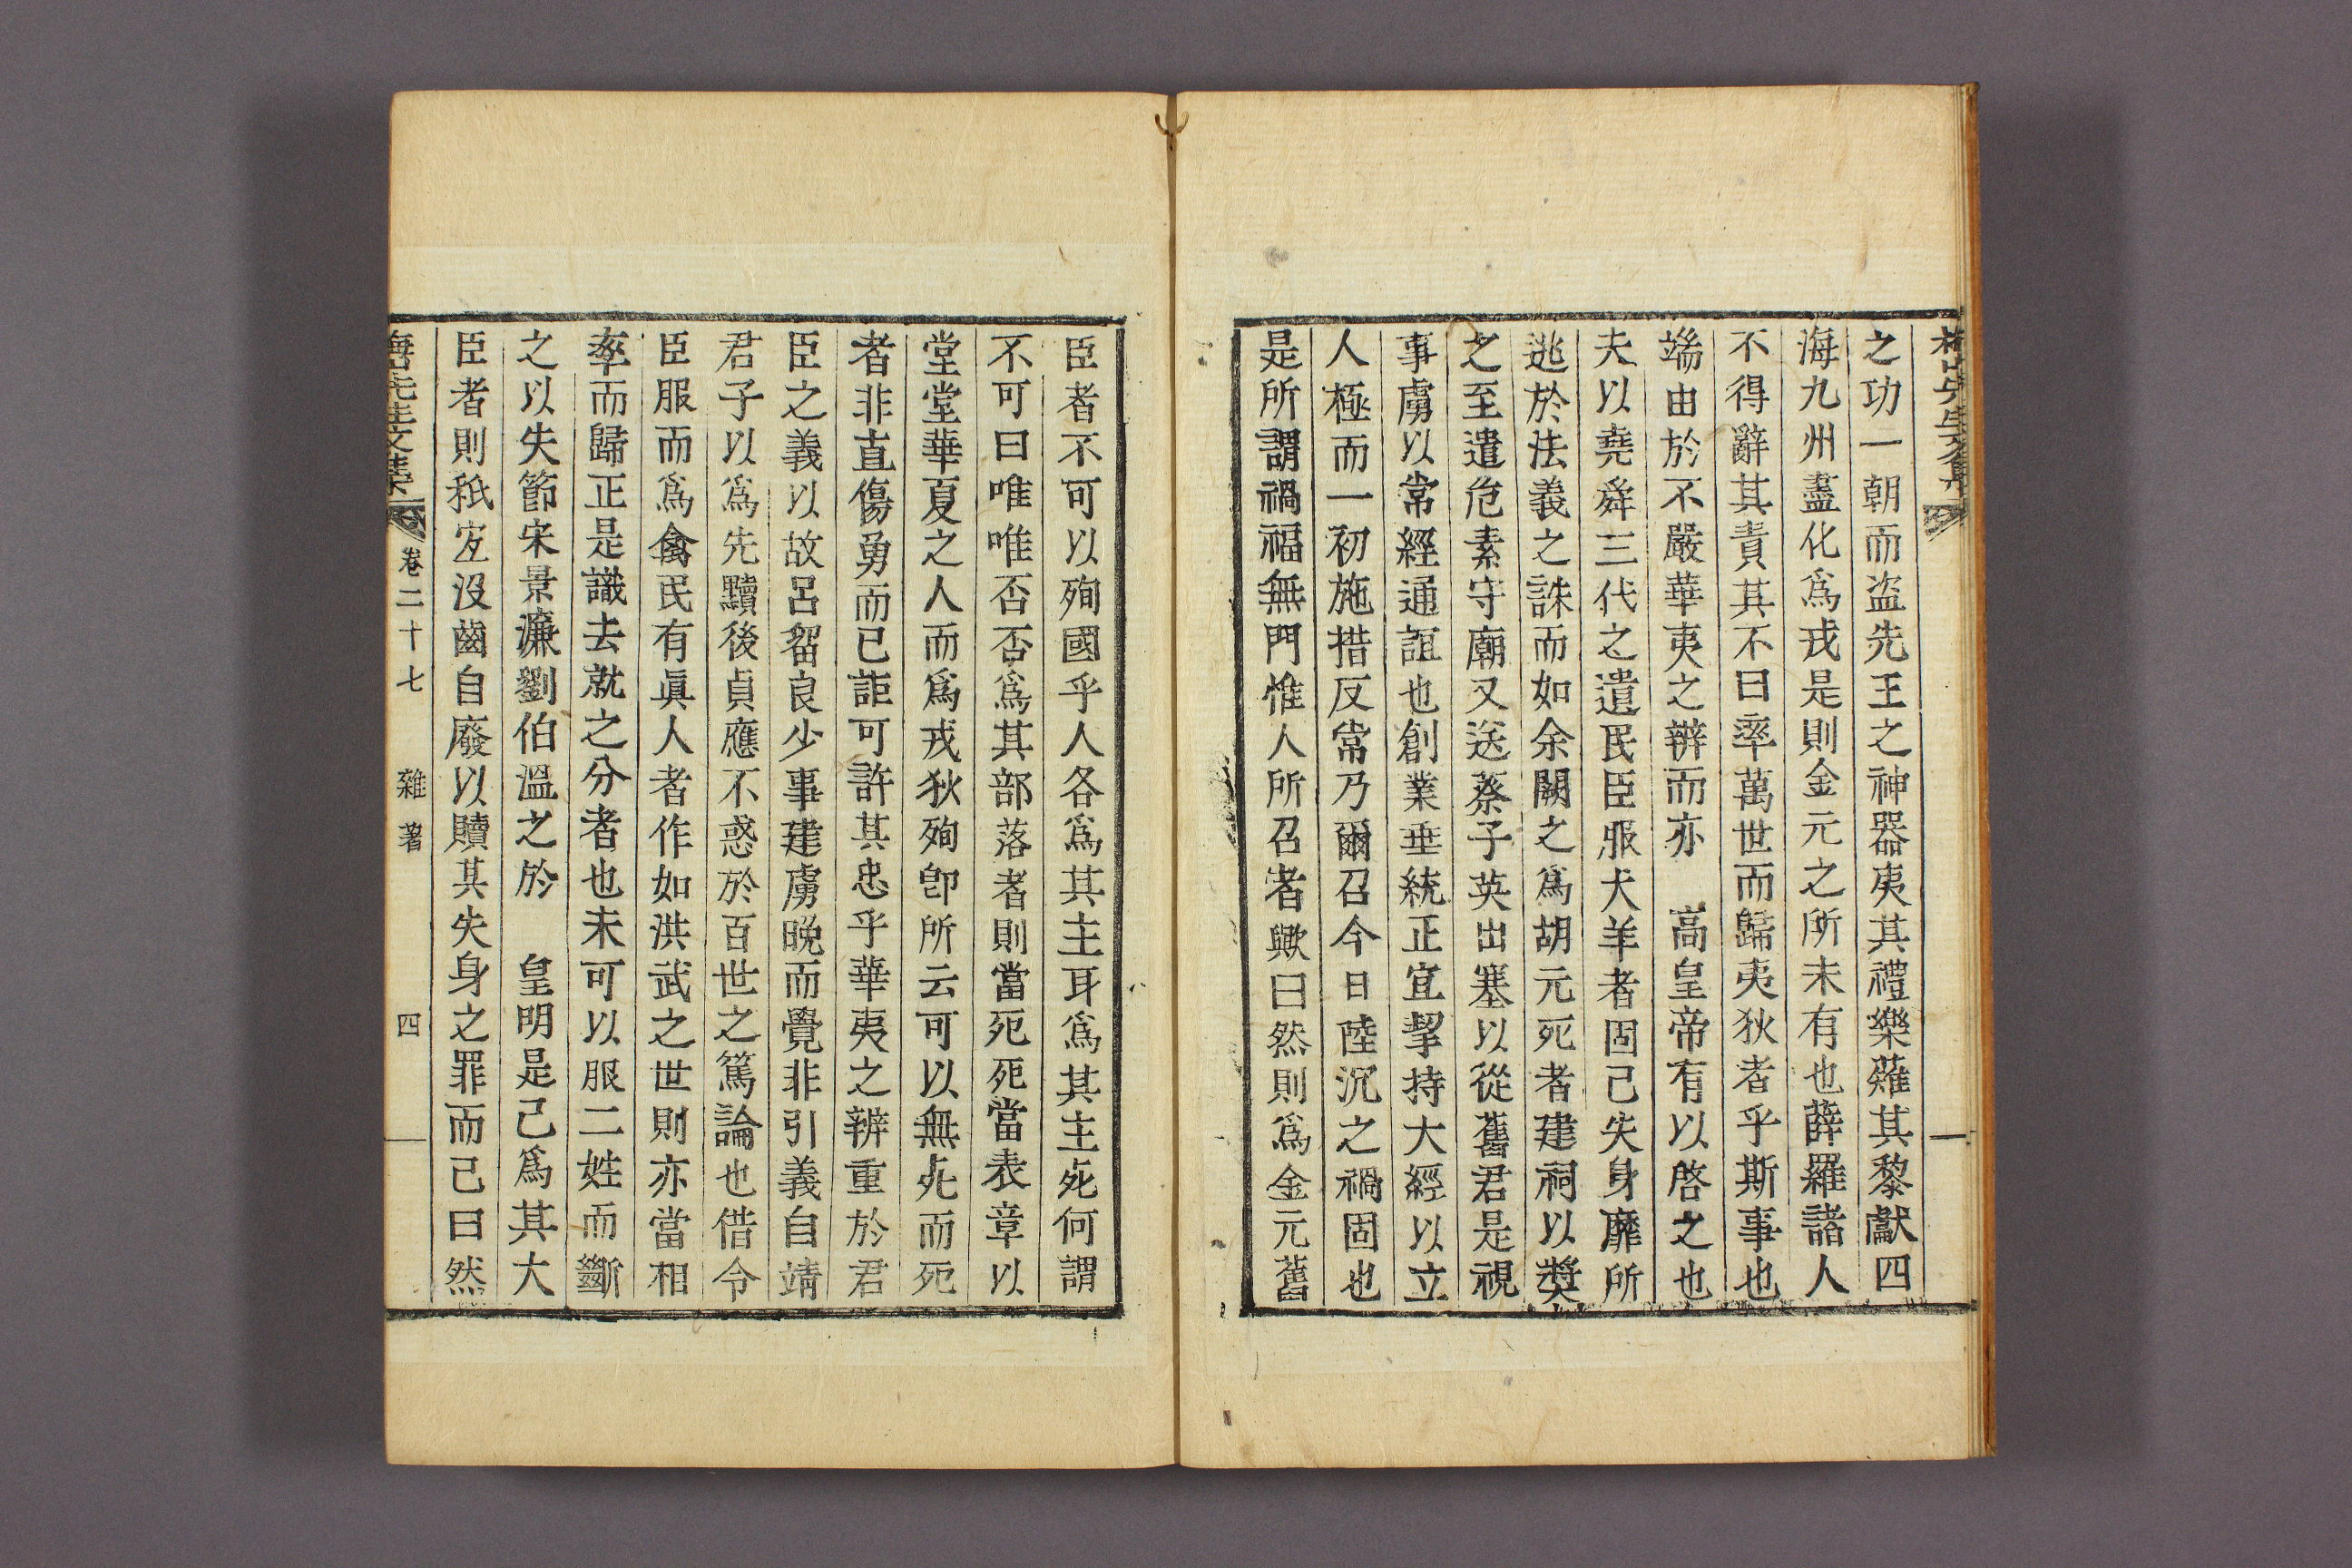 之功一朝而盗先王之神器夷其禮樂薙其黎獻四
海九州盡化爲戎是則金元之所未有也薛羅諸人
不得辭其責其不曰率萬世而歸夷狄者乎斯事也
端由於不嚴華夷之辨而亦 高皇帝有以啓之也
夫以堯舜三代之遺民臣服犬羊者固已失身靡所
逃於法義之誅而如余闕之爲胡元死者建祠以奬
之至遣危素守廟又送蔡子英出塞以從舊君是視
事虜以常經通誼也創業垂統正宜挈持大經以立
人極而一初施措反常乃爾召今日陸沉之禍固也
是所謂禍福無門惟人所召者歟曰然則爲金元舊
臣者不可以殉國乎人各爲其主耳爲其主死何謂
不可曰唯唯否否爲其部落者則當死死當表章以
堂堂華夏之人而爲戎狄殉卽所云可以無死而死
者非直傷勇而已詎可許其忠乎華夷之辨重於君
臣之義以故呂留良少事建虜晩而覺非引義自靖
君子以爲先黷後貞應不惑於百世之篤論也借令
臣服而爲禽民有眞人者作如洪武之世則亦當相
率而歸正是識去就之分者也未可以服二姓而斷
之以失節宋景濂劉伯溫之於 皇明是已爲其大
臣者則秖宐沒齒自廢以贖其失身之罪而已曰然
先生文集 卷二十七 雜著 四